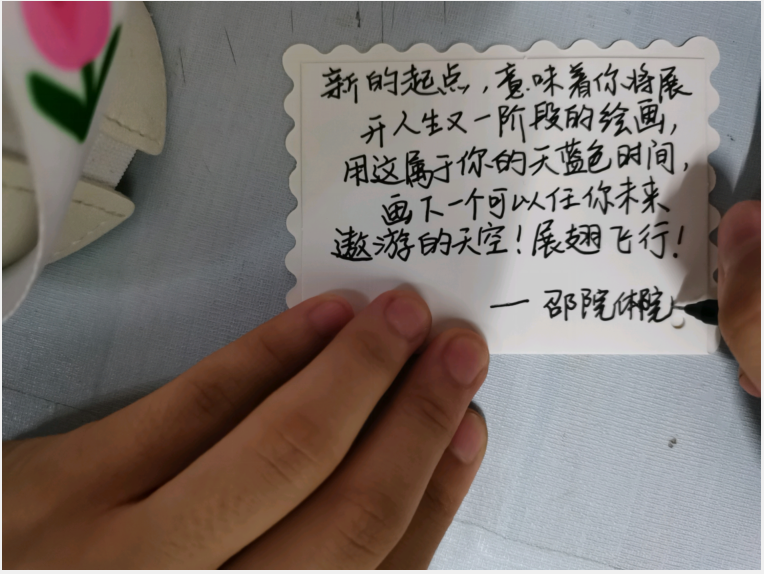 新的起点，意味着你将展
开人生又一阶段的绘画，
用这属于你的天蓝色时间，
画下一个可以任你未来
遨游的天空！展翅飞行！
— 邵院体院